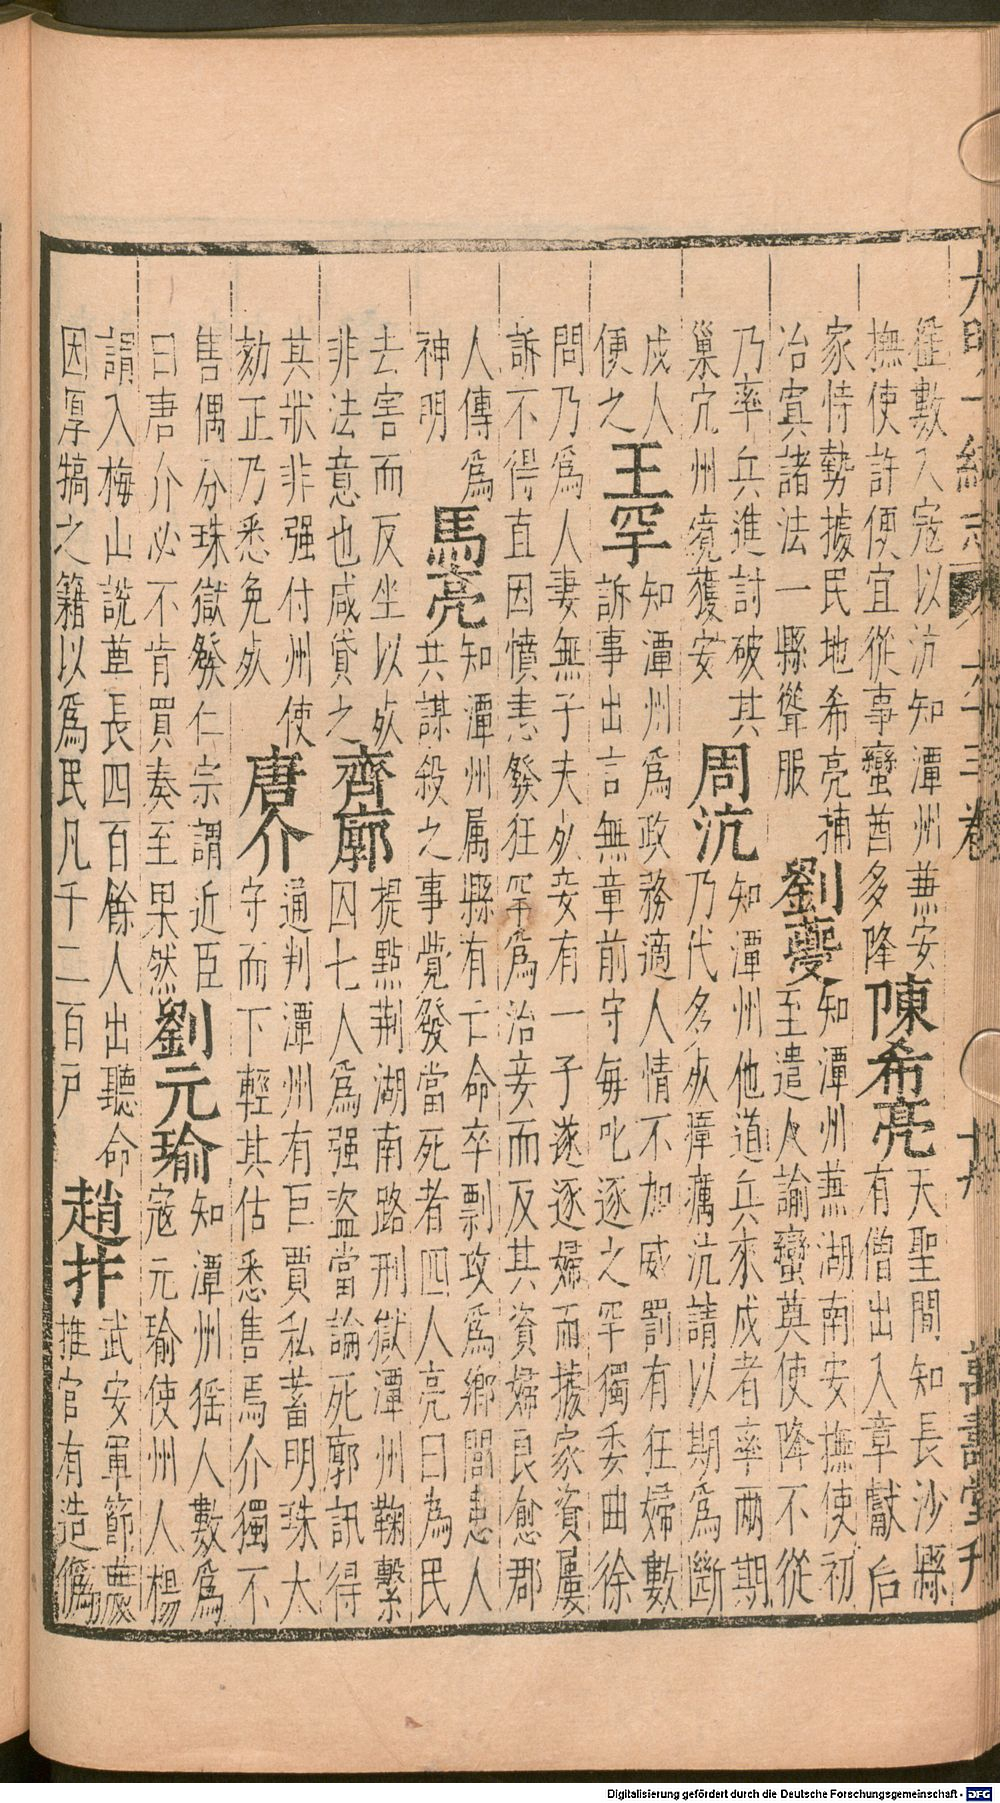 大明一統志 六十三卷 萬壽堂刊
徭數入寇以沆知潭州兼安
撫使許便宜從事蠻酋多降
陳希亮
天聖間知長沙縣
有僧出入章獻后
家恃勢據民地希亮捕
冶寘諸法一縣聳服
劉夔
知潭州兼湖南安撫使初
至遣人諭蠻莫使降不從
乃率兵進討破其
巢穴州境獲安
周沆
知潭州他道兵來戍者率兩期
乃代多死瘴癘沆請以期爲斷
戍人
便之
王罕
知潭州爲政務適人情不加威罰有狂婦數
訴事出言無章前守每叱逐之罕獨委曲徐
問乃爲人妻無子夫死妾有一子遂逐婦而據家資屢
訴不得直因憤恚發狂罕爲治妾而反其資婦良愈郡
人傳爲
神明
馬亮
知潭州属縣有亡命卒剽攻爲鄉閭患人
共謀殺之事覺發當死者四人亮曰為民
去害而反坐以死
非法意也咸貸之
齊廓
提點荆湖南路刑獄潭州鞠繫
囚七人爲强盗當論死廓訊得
其狀非强付州使
劾正乃悉免死
唐介
通判潭州有巨賈私蓄明珠大
守而下輕其估悉售焉介獨不
售偶分珠獄發仁宗謂近臣
曰唐介必不肯買奏至果然
劉元瑜
知潭州猺人數爲
寇元瑜使州人楊
謂入梅山說酋長四百餘人出聽命
因厚犒之籍以爲民凡千二百戶
趙抃
武安軍節度
推官有造僞
Digitalisierung gefördert durch die Deutsche Forschungsgemeinschaft - DFG